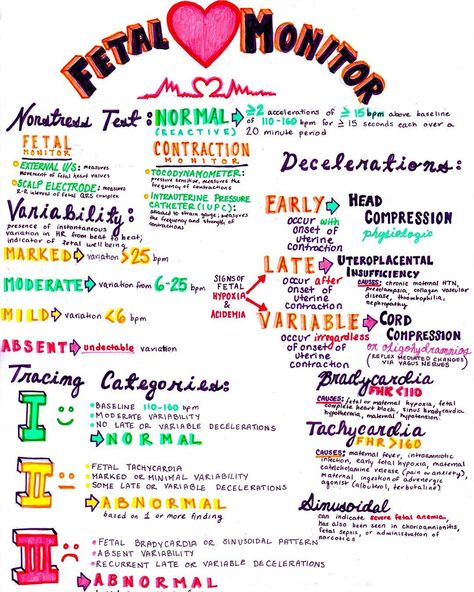 FETAL MONITOR
Nonstress Test: NORMAL (REACTIVE) → ≥2 accelerations of ≥ 15 bpm above baseline
of 110-160 bpm for ≥ 15 seconds each over a
20 minute period
FETAL MONITOR
• EXTERNAL U/S: measures
movement of fetal heart valves
• SCALP ELECTRODE: measures
R-R interval of fetal QRS complex
CONTRACTION MONITOR
• TOCODYNAMOMETER:
pressure sensitive, measures the
frequency of contractions
• INTRAUTERINE PRESSURE
CATHETER (IUPC):
attached to strain gauge; measures
the frequency and strength of
contractions
Variability:
presence of instantaneous
variation in HR from beat to beat;
indicator of fetal well being
MARKED → variation >25 bpm
MODERATE → variation from 6-25 bpm
MILD → variation <6 bpm
ABSENT → undectable variation
SIGNS OF
FETAL
HYPOXIA &
ACIDEMIA
Decelerations:
EARLY → HEAD COMPRESSION
occur with
onset of
uterine
contraction
physiologic
LATE → UTEROPLACENTAL INSUFFICIENCY
occur after
onset of
uterine
contraction
CAUSES: chronic maternal HTN,
preeclampsia, collagen vascular
disease, thrombophilia,
nephropathy
VARIABLE → CORD COMPRESSION
occur irregardless
of onset of
uterine
contraction
or oligohydramnios
(REFLEX MEDIATED CHANGES
VIA VAGUS NERVES)
Tracing Categories:
I
• BASELINE 110-160 bpm
• MODERATE VARIABILITY
• NO LATE OR VARIABLE DECELERATIONS
→ NORMAL
II
• FETAL TACHYCARDIA
• MARKED OR MINIMAL VARIABILITY
• SOME LATE OR VARIABLE DECELERATIONS
→ ABNORMAL
based on 1 or more finding
III
• FETAL BRADYCARDIA OR SINUSOIDAL PATTERN
• ABSENT VARIABILITY
• RECURRENT LATE OR VARIABLE DECELERATIONS
→ ABNORMAL
Bradycardia
FHR <110
CAUSES: fetal or maternal hypoxia, fetal
complete heart block, sinus bradycardia
hypothermia, maternal hypotension
Tachycardia
FHR >160
CAUSES: maternal fever, intraamniotic
infection, early fetal hypoxia, maternal
catecholamine release (pain or anxiety),
maternal ingestion of adrenergic
agonist (albuterol, terbutaline)
Sinusoidal
can indicate severe fetal anemia,
has also been seen in chorioamnionitis,
fetal sepsis, or administration of
narcotics